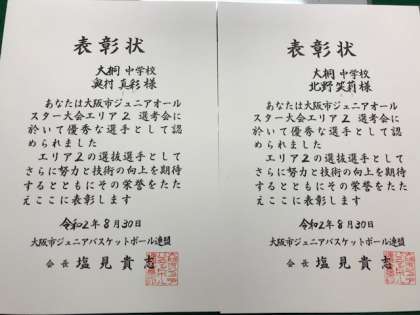 表彰状
大桐中学校
奥村真彩様
あなたは大阪市ジュニアオール
スター大会エリア2 選考会に
於いて優秀な選手として認
められました
エリア2の選抜選手として
さらに努力と技術の向上を期待
するとともにその栄誉をたた
えここに表彰します
令和2年8月30日
大阪市ジュニアバスケットボール連盟
会長 塩見貴志
表彰状
大桐中学校
北野笑莉様
あなたは大阪市ジュニアオール
スター大会エリア2 選考会に
於いて優秀な選手として認
められました
エリア2の選抜選手として
さらに努力と技術の向上を期待
するとともにその栄誉をたた
えここに表彰します
令和2年8月30日
大阪市ジュニアバスケットボール連盟
会長 塩見貴志